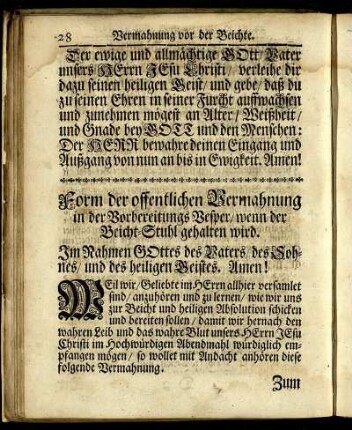 28 Vermahnung vor der Beichte.
Der ewige und allmächtige GOtt/ Vater
unsers HErrn JEsu Christi/ verleihe dir
dazu seinen heiligen Geist/ und gebe/ daß du
zu seinen Ehren in seiner Furcht auffwachsen
und zunehmen mögest an Alter/ Weißheit/
und Gnade bey GOTT und den Menschen:
Der HERR bewahre deinen Eingang und
Außgang von nun an bis in Ewigkeit. Amen!
Form der offentlichen Vermahnung
in der Vorbereitungs Vesper/ wenn der
Beicht-Stuhl gehalten wird.
Im Nahmen GOttes des Vaters/ des Soh-
nes/ und des heiligen Geistes. Amen!
WEil wir/ Geliebte im HErrn allhier versamlet
sind/ anzuhören und zu lernen/ wie wir uns
zur Beicht und heiligen Absolution schicken
und bereiten sollen/ damit wir hernach den
wahren Leib und das wahre Blut unsers HErrn JEsu
Christi im Hochwürdigen Abendmahl würdiglich em-
pfangen mögen/ so wollet mit Andacht anhören diese
folgende Vermahnung.
Zum